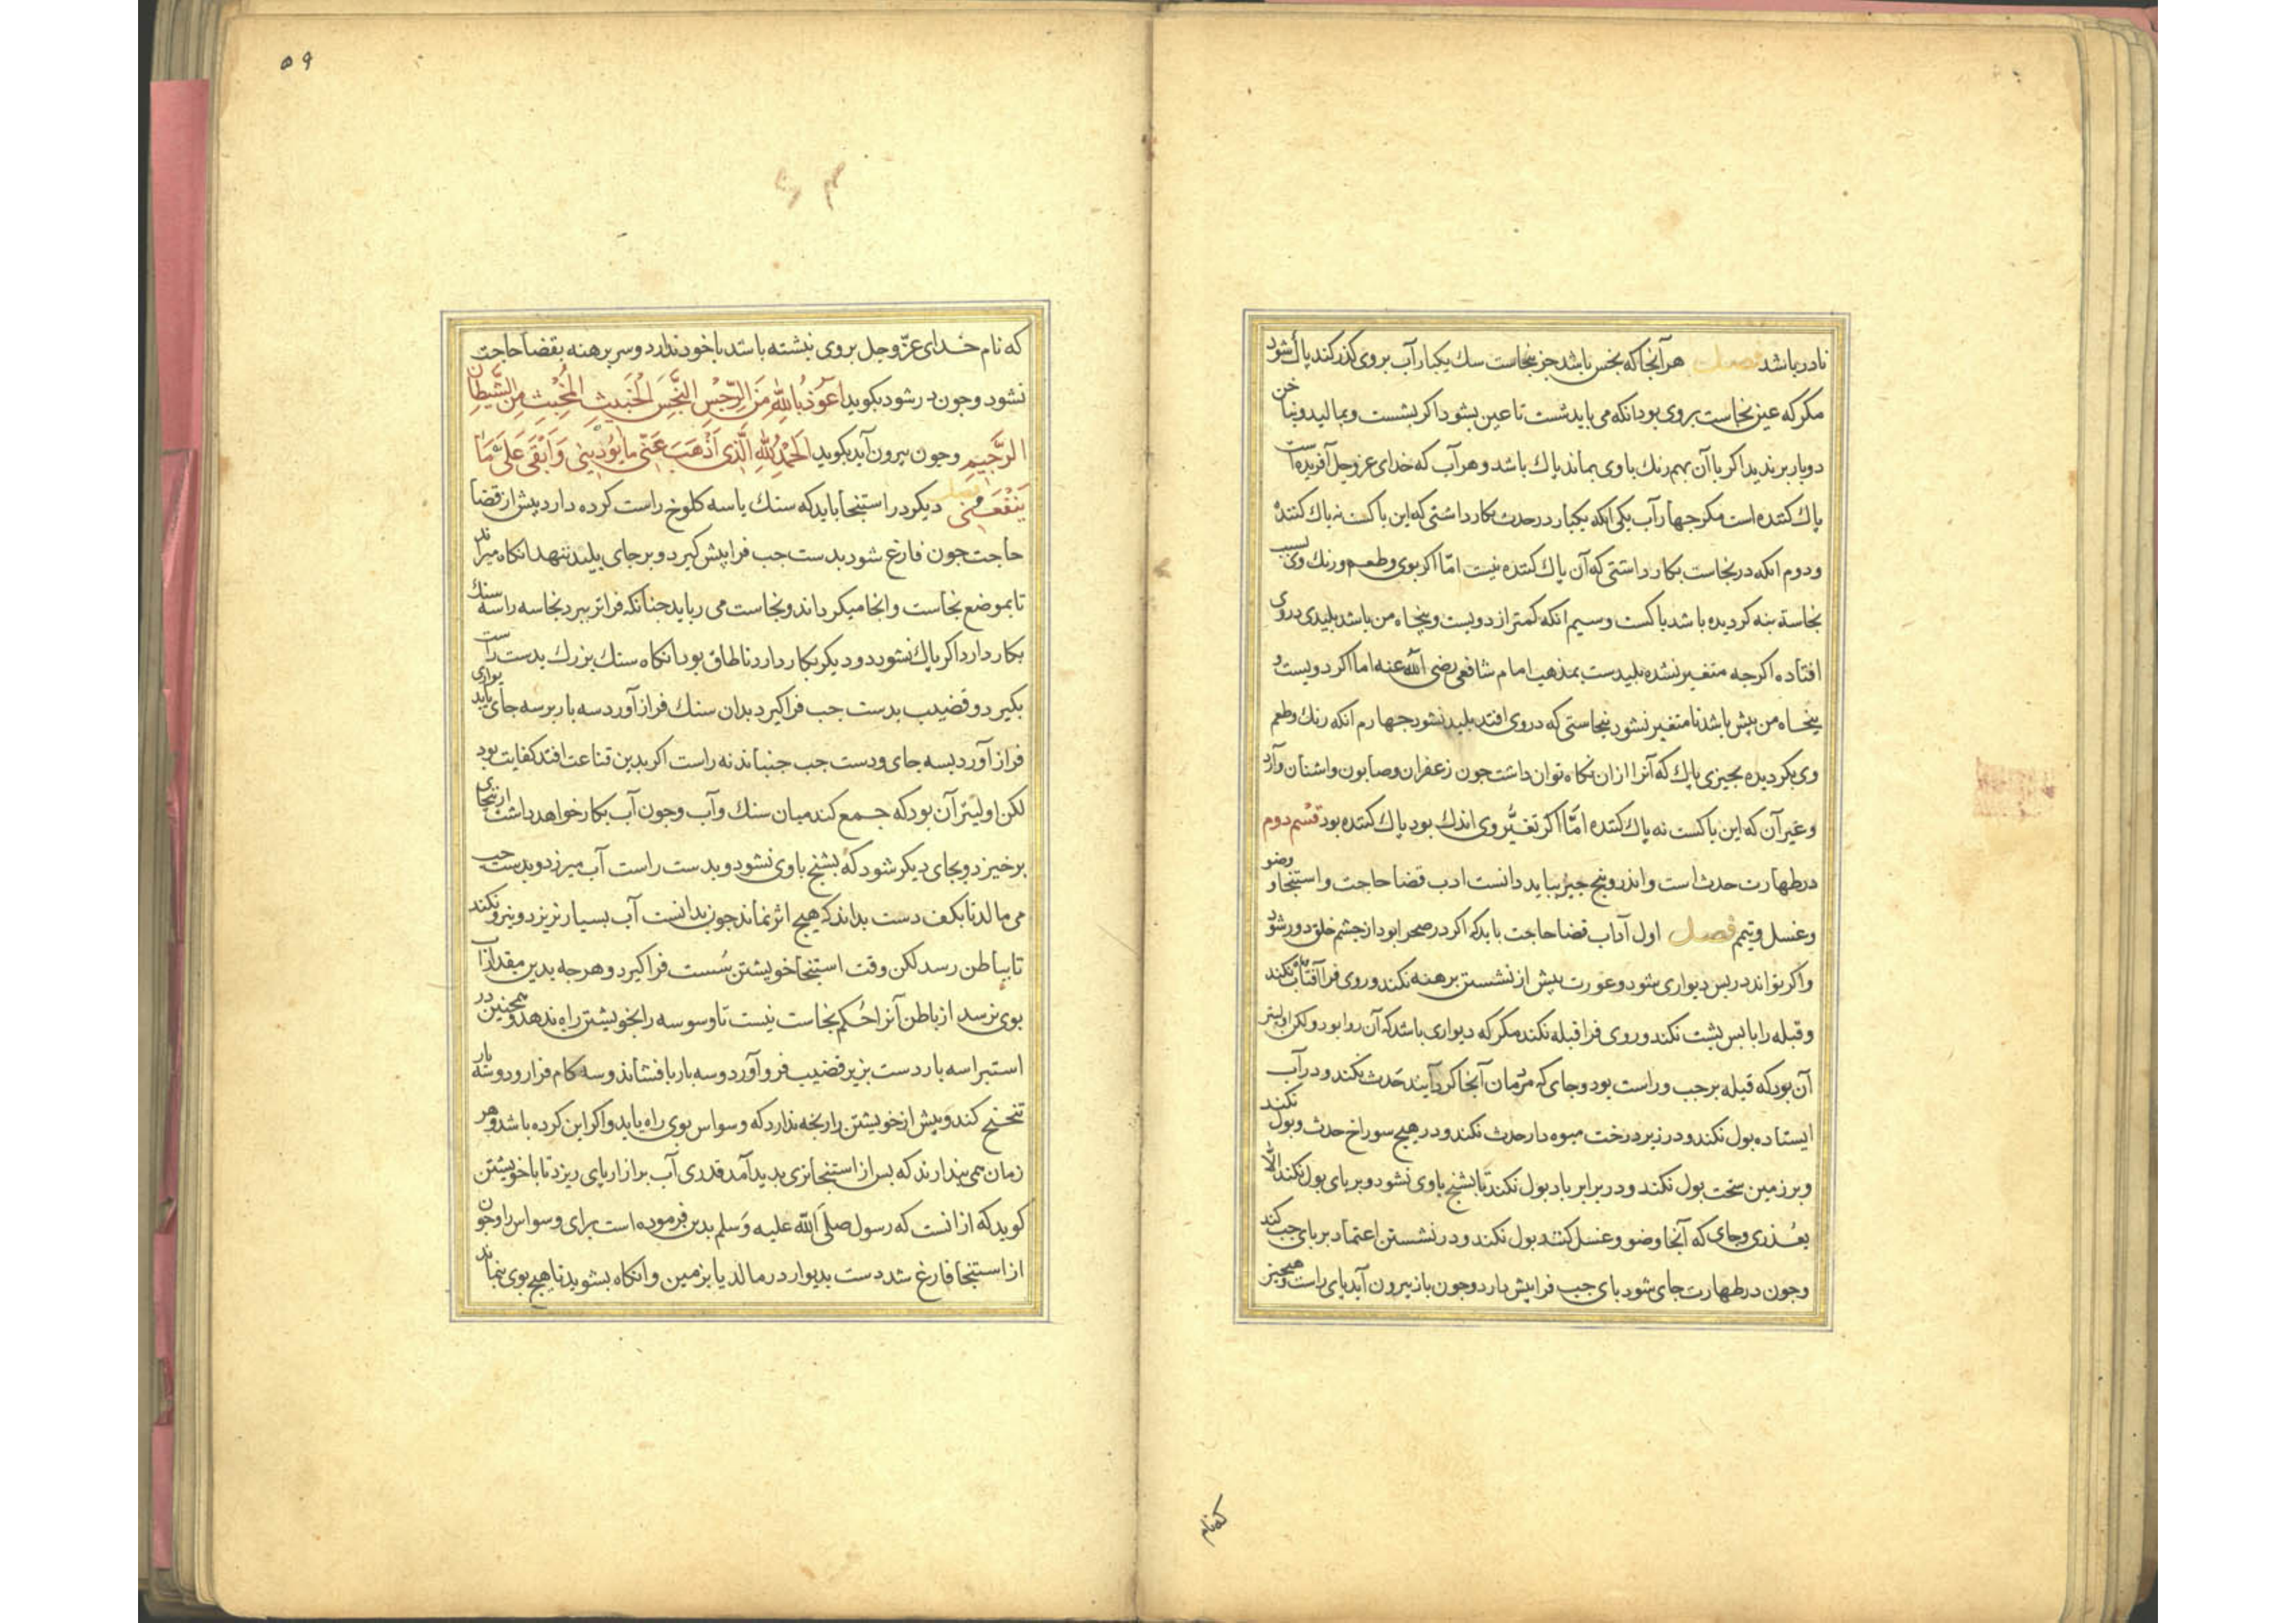 نادر باشد فصل هر آنجا که نجس باشد جز نجاست سك یکبار آب بر وی کذر کند پاك شود
مکر که عین نجاست بر وی بود انکه می باید شست تا عین بشود اکر بشست و بمالید و بناخن
دو بار برندید اکر با آن بهم رنك با وی بماند پاك باشد و هر آب که خدای عز وجل آفریده است
پاك کننده است مکر جهار آب یکی انکه یکبار در حدث بکار داشتی که این پاکست نه پاك کننده
و دوم انکه در نجاست بکار داشتی که آن پاك کننده نیست امّا اکر بوی و طعم و رنك وی بسبب
نجاسة بنه کردیده باشد پاکست و سیم انکه کمتر از دویست و پنجاه من باشد بلیدی در وی
افتاده اکرجه متغیر نشده بلیدست بمذهب امام شافعی رضی الله عنه اما اکر دویست و
پنجاه من بیش باشد تا متغیر نشود نجاستی که در وی افتد بلید نشود جهارم انکه رنك وطعم
وی بکردیده بجیزی پاك که آنرا ازان نکاه توان داشت جون زعفران وصابون واشنان وآرد
وغیر آن که این پاکست نه پاك کننده امّا اکر تغیُّر وی اندك بود پاك کننده بود قسم دوم
در طهارت حدث است و اندرو پنج جیز بباید دانست ادب قضا حاجت و استنجا و وضو
وغسل وتیمم فصل اول آداب قضا حاجت باید که اکر در صحرا بود از جشم خلق دور شود
واکر تواند در بس دیواری شود و عورت بیش از نشستن برهنه نکند و روی فرا آفتاب نکند
و قبله را با بس بشت نکند و روی فرا قبله نکند مکر که دیواری باشد که آن روا بود ولکن اولیتر
آن بود که قبله بر جب و راست بود و جای که مردمان آنجا کرد آیند حَدث نکند و در آب
ایستاده بول نکند و در زیر درخت میوه دار حدث نکند و در هیج سوراخ حدث و بول نکند
و بر زمین سخت بول نکند و در برابر باد بول نکند تا بشنج با وی نشود و بر پای بول نکند الا
بعُذری و جای که آنجا وضو و غسل کنند بول نکند و در نشستن اعتماد بر پای جب کند
وجون در طهارت جای شود پای جب فرا پیش دارد وجون باز بیرون آید پای راست و هیجیز
که نام
٥٩
که نام خدای عزّ وجل بر وی نبشته باشد با خود ندارد و سر برهنه بقضا حاجت
نشود وجون در شود بکوید اَعُوذُ بِاللهِ مِنَ الرِّجْسِ النَّجِسِ الْخَبِیثِ الْمُخْبِثِ مِنَ الشَّیْطَانِ
الرَّجِیمِ وجون بیرون آید بکوید اَلْحَمْدُ لِلهِ الَّذِی اَذْهَبَ عَنّی مَا یُوْذِینِی وَاَبْقَی عَلَیَّ مَا
یَنْفَعُنِی فصل دیکر در استنجا باید که سنك یا سه کلوخ راست کرده دارد پیش از قضا
حاجت جون فارغ شود بدست جب فرا پیش کیرد و بر جای بلید ننهد انکاه میراند
تا بموضع نجاست و انجا میکرداند و نجاست می رباید جنانکه فراتر نبرد نجاسه را سه سنك
بکار دارد اکر پاك نشود دو دیکر بکار دارد تا طاق بود انکاه سنك بزرك بدست راست
بکیرد و قضیب بدست جب فرا کیرد بدان سنك فراز آورد سه بار بر سه جای یا بدیواری
فراز آورد بسه جای و دست جب جنباند نه راست اکر بدین قناعت افتد کفایت بود
لکن اولیتر آن بود که جمع کند میان سنك و آب وجون آب بکار خواهد داشت از ینجای
برخیزد و بجای دیکر شود که بشنج با وی نشود و بدست راست آب میریزد و بدست جب
می مالد تا بکف دست بداند که هیج اثر نماند جون بدانست آب بسیار نریزد و نیرو نکند
تا بباطن رسد لکن وقت استنجا خویشتن سُست فرا کیرد و هر جه بدین مقدار آب
بوی نرسد از باطن آنرا حُکم نجاست نیست تا وسوسه را بخویشتن راه ندهد و همجنین در
استبرا سه بار دست بزیر قضیب فرو آورد و سه بار بافشاند و سه کام فرا رود و سه بار
تنحنح کند و بیش از خویشتن را رنجه ندارد که وسواس بوی راه یابد و اکر این کرده باشد و هر
زمان می پندارند که بس از استنجا تری بدید آمد قدری آب بر ازار پای ریزد تا با خویشتن
کوید که از انست که رسول صلَّی الله علیه وَسلم بدین فرموده است برای وسواس را وجون
از استنجا فارغ شد دست بدیوار در مالد یا بزمین و انکاه بشوید تا هیج بوی نماند